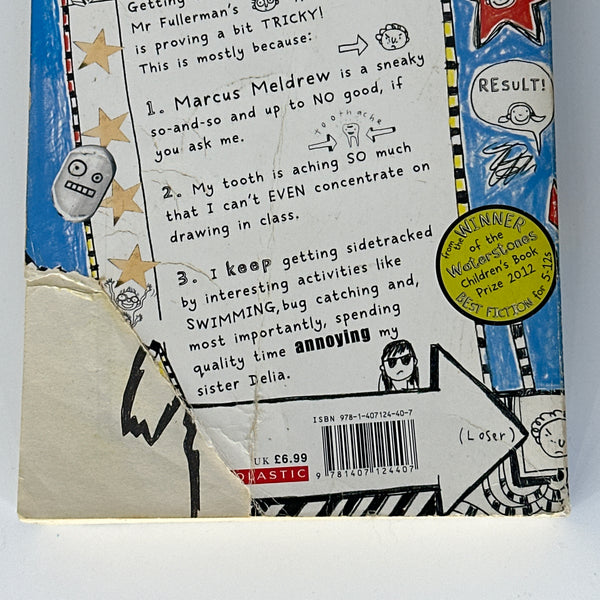 Getting
Mr Fullerman's
is proving a bit TRICKY!
This is mostly because:
1. Marcus Meldrew is a sneaky
so-and-so and up to NO good, if
you ask me.
toothache
2. My tooth is aching SO much
that I can't EVEN concentrate on
drawing in class.
3. I keep getting sidetracked
by interesting activities like
SWIMMING, bug catching and,
most importantly, spending
quality time annoying my
sister Delia.
RESULT!
from the WINNER
of the
Waterstones
Children's Book
Prize 2012
BEST FICTION for 5-12s
ISBN 978-1-407124-40-7
UK £6.99
9 781407 124407
(Loser)